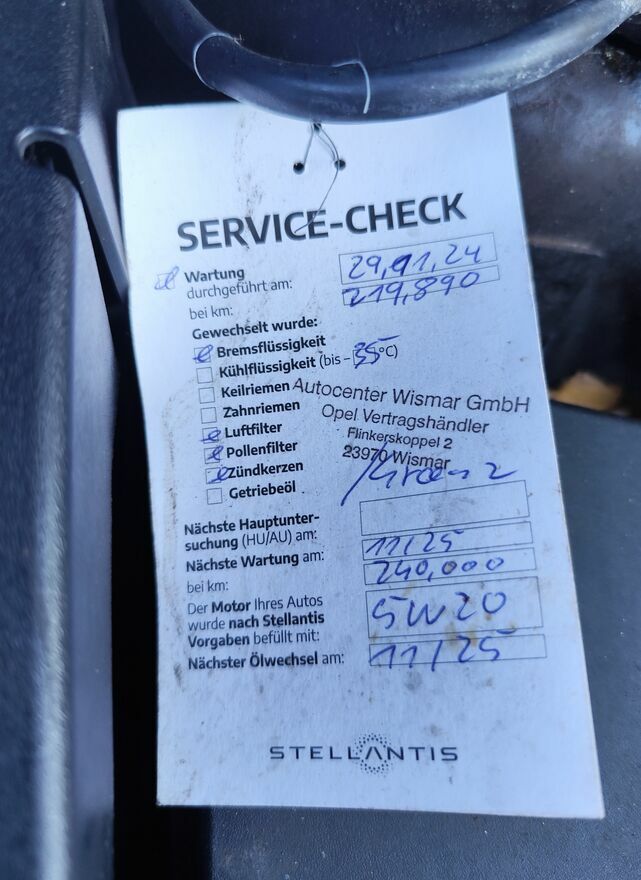 SERVICE-CHECK
Wartung
durchgeführt am: 29.11.24
bei km: 219.890
Gewechselt wurde:
Bremsflüssigkeit
Kühlflüssigkeit (bis -35°C)
Keilriemen
Zahnriemen
Luftfilter
Pollenfilter
Zündkerzen
Getriebeöl
Autocenter Wismar GmbH
Opel Vertragshändler
Flinkerskoppel 2
23970 Wismar
Nächste Hauptunter-
suchung (HU/AU) am:
Nächste Wartung am: 11/25
bei km: 240.000
Der Motor Ihres Autos
wurde nach Stellantis
Vorgaben befüllt mit: 5W20
Nächster Ölwechsel am: 11/25
STELLANTIS